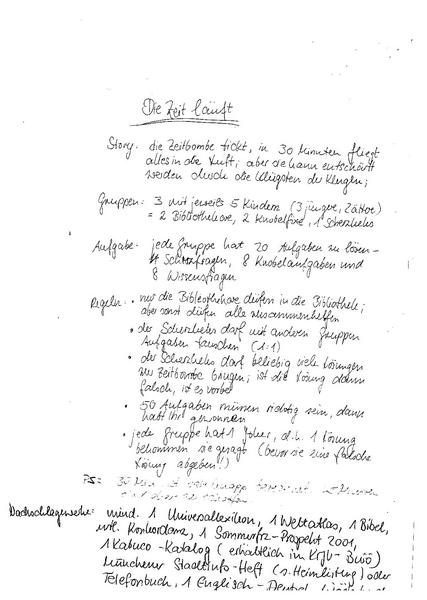 Die Zeit läuft
Story: die Zeitbombe tickt, in 30 Minuten fliegt
alles in die Luft; aber sie kann entschärft
werden durch die Klügsten der Klugen;
Gruppen: 3 mit jeweils 5 Kindern (3 jüngere, 2 ältere)
= 2 Bibliothekare, 2 Knobelfixe, 1 Scherzkeks
Aufgabe: jede Gruppe hat 20 Aufgaben zu lösen -
4 Scherzfragen, 8 Knobelaufgaben und
8 Wissensfragen
Regeln: • nur die Bibliothekare dürfen in die Bibliothek;
aber sonst dürfen alle zusammenhelfen
• der Scherzkeks darf mit anderen Gruppen
Aufgaben tauschen (1:1)
• der Scherzkeks darf beliebig viele Lösungen
zur Zeitbombe bringen; ist die Lösung dann
falsch, ist es vorbei
• 50 Aufgaben müssen richtig sein, dann
habt Ihr gewonnen
• jede Gruppe hat 1 Joker, d.h. 1 Lösung
bekommen sie gesagt (bevor sie eine falsche
Lösung abgeben!!)
PS: 30 Min. ist
Nachschlagewerke: mind. 1 Universallexikon, 1 Weltatlas, 1 Bibel,
evtl. Konkordanz, 1 Sommerfrz-Prospekt 2001,
1 Kabuco-Katalog (erhältlich im KJB-Büö)
Münchner Stadtinfo-Heft (s. Heimleitung) oder
Telefonbuch, 1 Englisch-Deutsch